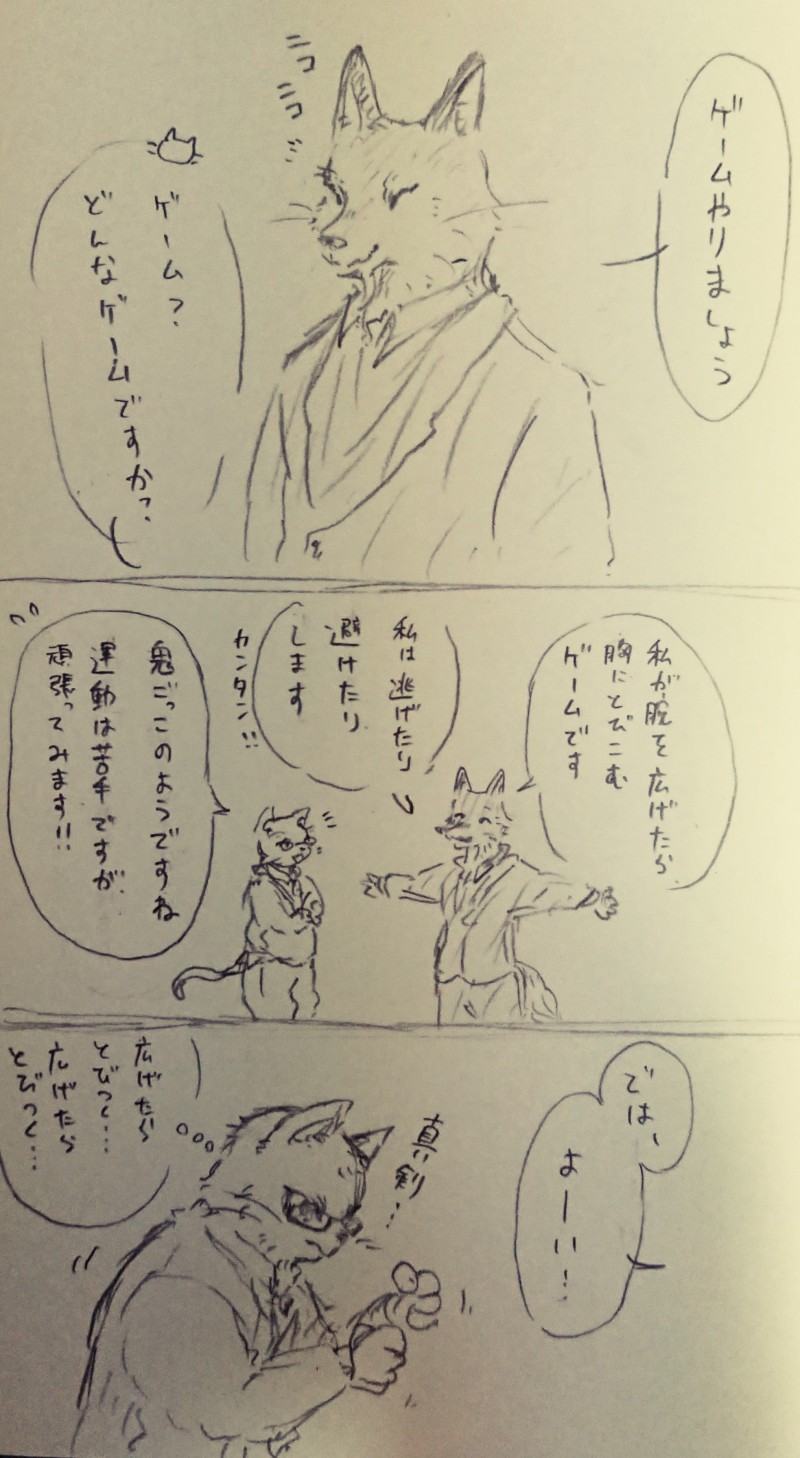 ゲームやりましょう
ニコ
ニコ
ゲーム？
どんなゲームですか？
私が腕を広げたら
胸にとびこむ
ゲームです
私は逃げたり
避けたり
します
カンタン!!
鬼ごっこのようですね
運動は苦手ですが、
頑張ってみます!!
では、
よーい！
真剣…
広げたら
とびつく…
広げたら
とびつく…